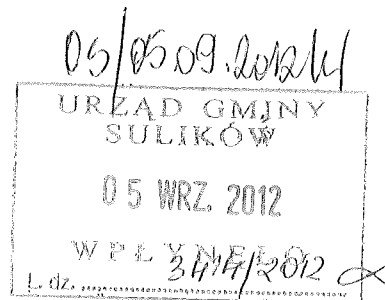 05/05.09.2012
URZĄD GMINY
SULIKÓW
05 WRZ. 2012
WPŁYNĘŁO
L. dz. 3414/2012